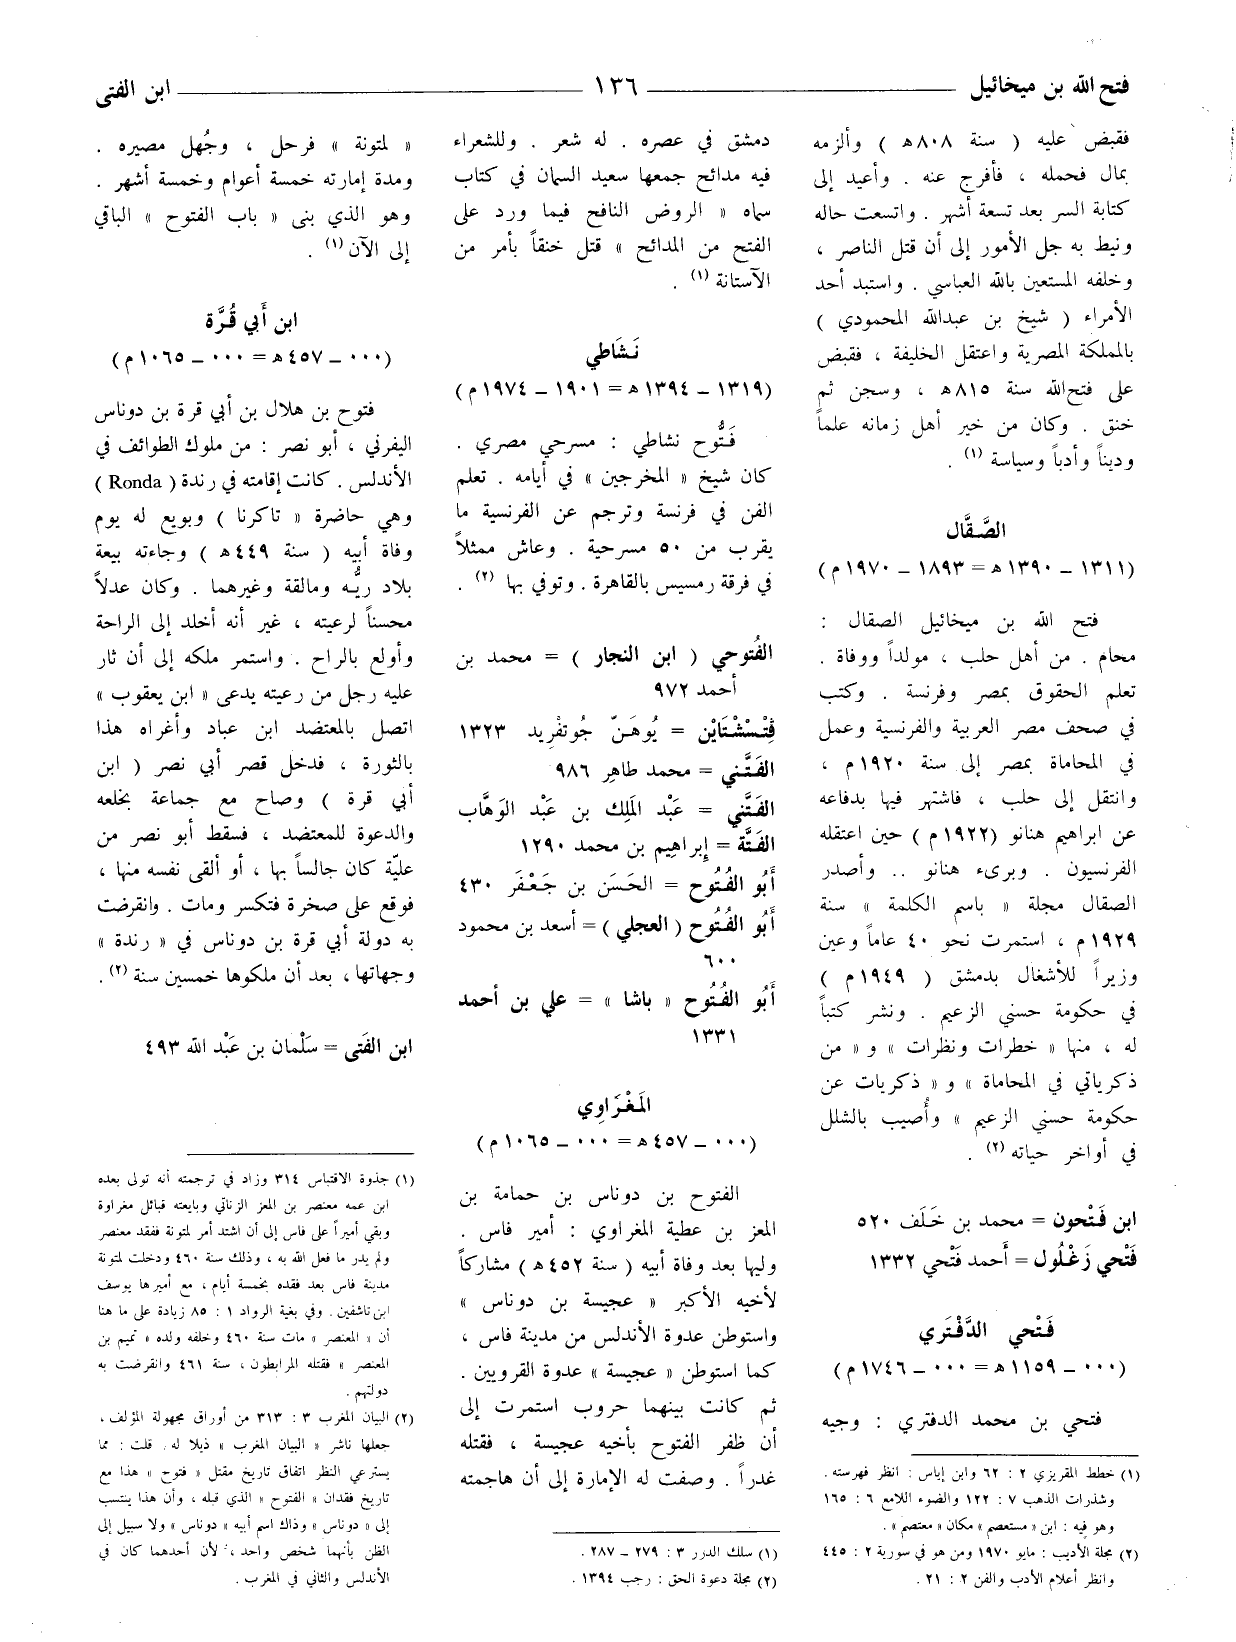 فتح الله بن ميخائيل
١٣٦
ابن الفتى
فقبض عليه ( سنة ٨٠٨ هـ ) وألزمه
بمال فحمله ، فأفرج عنه . وأعيد إلى
كتابة السر بعد تسعة أشهر . واتسعت حاله
ونيط به جل الأمور إلى أن قتل الناصر ،
وخلفه المستعين بالله العباسي . واستبد أحد
الأمراء ( شيخ بن عبدالله المحمودي )
بالمملكة المصرية واعتقل الخليفة ، فقبض
على فتح‌الله سنة ٨١٥ هـ ، وسجن ثم
خنق . وكان من خير أهل زمانه علماً
وديناً وأدباً وسياسة (١) .
الصَّقَّال
(١٣١١ – ١٣٩٠ هـ = ١٨٩٣ – ١٩٧٠ م)
فتح الله بن ميخائيل الصقال :
محام . من أهل حلب ، مولداً ووفاة .
تعلم الحقوق بمصر وفرنسة . وكتب
في صحف مصر العربية والفرنسية وعمل
في المحاماة بمصر إلى سنة ١٩٢٠ م ،
وانتقل إلى حلب ، فاشتهر فيها بدفاعه
عن ابراهيم هنانو (١٩٢٢ م ) حين اعتقله
الفرنسيون . وبرىء هنانو .. وأصدر
الصقال مجلة « باسم الكلمة » سنة
١٩٢٩ م ، استمرت نحو ٤٠ عاماً وعين
وزيراً للأشغال بدمشق ( ١٩٤٩ م )
في حكومة حسني الزعيم . ونشر كتباً
له ، منها « خطرات ونظرات » و « من
ذكرياتي في المحاماة » و « ذكريات عن
حكومة حسني الزعيم » وأُصيب بالشلل
في أواخر حياته (٢) .
ابن فَتْحون = محمد بن خَلَف ٥٢٠
فَتْحي زَغْلُول = أَحمد فَتْحي ١٣٣٢
فَتْحي الدَّفْتَري
(٠٠٠ – ١١٥٩ هـ = ٠٠٠ – ١٧٤٦ م)
فتحي بن محمد الدفتري : وجيه
(١) خطط المقريزي ٢ : ٦٢ وابن إياس : انظر فهرسته .
وشذرات الذهب ٧ : ١٢٢ والضوء اللامع ٦ : ١٦٥
وهو فيه : ابن « مستعصم » مكان « معتصم » .
(٢) مجلة الأديب : مايو ١٩٧٠ ومن هو في سورية ٢ : ٤٤٥
وانظر أعلام الأدب والفن ٢ : ٢١ .
دمشق في عصره . له شعر . وللشعراء
فيه مدائح جمعها سعيد السمان في كتاب
سماه « الروض النافح فيما ورد على
الفتح من المدائح » قتل خنقاً بأمر من
الآستانة (١) .
نَشَاطي
(١٣١٩ – ١٣٩٤ هـ = ١٩٠١ – ١٩٧٤ م)
فَتُّوح نشاطي : مسرحي مصري .
كان شيخ « المخرجين » في أيامه . تعلم
الفن في فرنسة وترجم عن الفرنسية ما
يقرب من ٥٠ مسرحية . وعاش ممثلاً
في فرقة رمسيس بالقاهرة . وتوفي بها (٢) .
الفُتوحي ( ابن النجار ) = محمد بن
أحمد ٩٧٢
فِتْسْشْتَاين = يُوهَنّ جُوتفْرِيد ١٣٢٣
الفَتَّني = محمد طاهِر ٩٨٦
الفَتَّني = عَبْد المَلِك بن عَبْد الوَهَّاب
الفَتَّة = إِبراهِيم بن محمد ١٢٩٠
أَبُو الفُتُوح = الحَسَن بن جَعْفَر ٤٣٠
أَبُو الفُتُوح ( العجلي ) = أسعد بن محمود
٦٠٠
أَبُو الفُتُوح « باشا » = علي بن أحمد
١٣٣١
المَغْرَاوِي
(٠٠٠ – ٤٥٧ هـ = ٠٠٠ – ١٠٦٥ م)
الفتوح بن دوناس بن حمامة بن
المعز بن عطية المغراوي : أمير فاس .
وليها بعد وفاة أبيه ( سنة ٤٥٢ هـ ) مشاركاً
لأخيه الأكبر « عجيسة بن دوناس »
واستوطن عدوة الأندلس من مدينة فاس ،
كما استوطن « عجيسة » عدوة القرويين .
ثم كانت بينهما حروب استمرت إلى
أن ظفر الفتوح بأخيه عجيسة ، فقتله
غدراً . وصفت له الإمارة إلى أن هاجمته
(١) سلك الدرر ٣ : ٢٧٩ – ٢٨٧ .
(٢) مجلة دعوة الحق : رجب ١٣٩٤ .
« لمتونة » فرحل ، وجُهل مصيره .
ومدة إمارته خمسة أعوام وخمسة أشهر .
وهو الذي بنى « باب الفتوح » الباقي
إلى الآن (١) .
ابن أَبي قُرَّة
(٠٠٠ – ٤٥٧ هـ = ٠٠٠ – ١٠٦٥ م)
فتوح بن هلال بن أبي قرة بن دوناس
اليفرني ، أبو نصر : من ملوك الطوائف في
الأندلس . كانت إقامته في رندة ( Ronda )
وهي حاضرة « تاكرنا ) وبويع له يوم
وفاة أبيه ( سنة ٤٤٩ هـ ) وجاءته بيعة
بلاد ريُّه ومالقة وغيرهما . وكان عدلاً
محسناً لرعيته ، غير أنه أخلد إلى الراحة
وأولع بالراح . واستمر ملكه إلى أن ثار
عليه رجل من رعيته يدعى « ابن يعقوب »
اتصل بالمعتضد ابن عباد وأغراه هذا
بالثورة ، فدخل قصر أبي نصر ( ابن
أبي قرة ) وصاح مع جماعة بخلعه
والدعوة للمعتضد ، فسقط أبو نصر من
عليّة كان جالساً بها ، أو ألقى نفسه منها ،
فوقع على صخرة فتكسر ومات . وانقرضت
به دولة أبي قرة بن دوناس في « رندة »
وجهاتها ، بعد أن ملكوها خمسين سنة (٢) .
ابن الفَتى = سَلْمان بن عَبْد الله ٤٩٣
(١) جذوة الاقتباس ٣١٤ وزاد في ترجمته أنه تولى بعده
ابن عمه معنصر بن المعز الزناتي وبايعته قبائل مغراوة
وبقي أميراً على فاس إلى أن اشتد أمر لمتونة ففقد معنصر
ولم يدر ما فعل الله به ، وذلك سنة ٤٦٠ ودخلت لمتونة
مدينة فاس بعد فقده بخمسة أيام ، مع أميرها يوسف
ابن تاشفين . وفي بغية الرواد ١ : ٨٥ زيادة على ما هنا
أن « المعنصر » مات سنة ٤٦٠ وخلفه ولده « تميم بن
المعنصر » فقتله المرابطون ، سنة ٤٦١ وانقرضت به
دولتهم .
(٢) البيان المغرب ٣ : ٣١٣ من أوراق مجهولة المؤلف ،
جعلها ناشر « البيان المغرب » ذيلا له . قلت : مما
يسترعي النظر اتفاق تاريخ مقتل « فتوح » هذا مع
تاريخ فقدان « الفتوح » الذي قبله ، وأن هذا ينتسب
إلى « دوناس » وذاك اسم أبيه « دوناس » ولا سبيل إلى
الظن بأنهما شخص واحد ، لأن أحدهما كان في
الأندلس والثاني في المغرب .